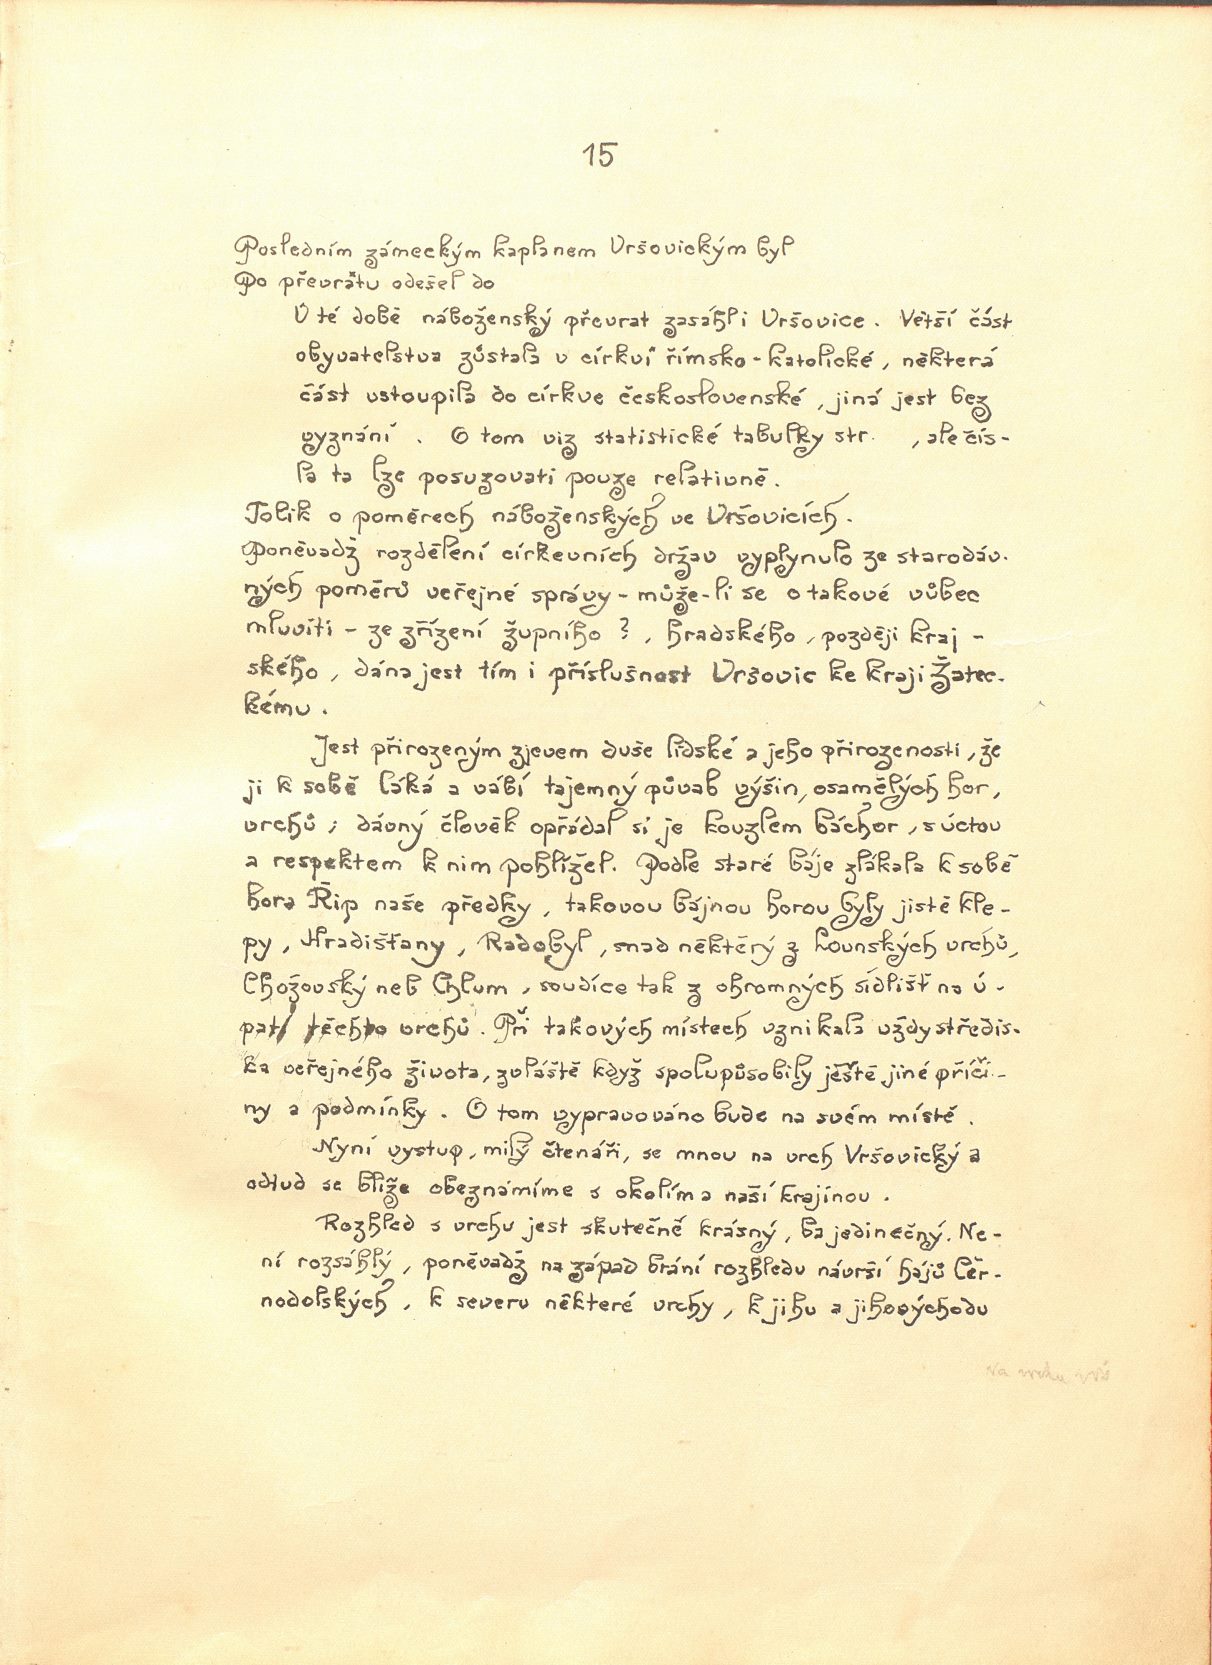 15
Posledním zámeckým kaplanem Vršovickým byl
Po převratu odešel do
V té době náboženský převrat zasáhl i Vršovice. Větší část
obyvatelstva zůstala v církvi římsko-katolické, některá
část vstoupila do církve československé, jiná jest bez
vyznání. O tom viz statistické tabulky str. , ale čís-
la ta lze posuzovati pouze relativně.
Tolik o poměrech náboženských ve Vršovicích.
Poněvadž rozdělení církevních držav vyplynulo ze starodáv-
ných poměrů veřejné správy - může-li se o takové vůbec
mluviti - ze zřízení župního ?, hradského, později kraj-
ského, dána jest tím i příslušnost Vršovic ke kraji Žatec-
kému.
Jest přirozeným zjevem duše lidské a jeho přirozenosti, že
ji k sobě láká a vábí tajemný půvab výšin, osamělých hor,
vrchů; dávný člověk opřádal si je kouzlem báchor, s úctou
a respektem k nim pohlížel. Podle staré báje zlákala k sobě
hora Řip naše předky, takovou bájnou horou byly jistě Kle-
py, Hradišťany, Radobyl, snad některý z Lounských vrchů,
Chožovský neb Chlum, soudíce tak z ohromných sídlišť na ú-
patí těchto vrchů. Při takových místech vznikala vždy středis-
ka veřejného života, zvláště když spolupůsobily ještě jiné příči-
ny a podmínky. O tom vypravováno bude na svém místě.
Nyní vystup, milý čtenáři, se mnou na vrch Vršovický a
odtud se blíže obeznámíme s okolím a naší krajinou.
Rozhled s vrchu jest skutečně krásný, ba jedinečný. Ne-
ní rozsáhlý, poněvadž na západ brání rozhledu návrší hájů Čer-
nodolských, k severu některé vrchy, k jihu a jihovýchodu